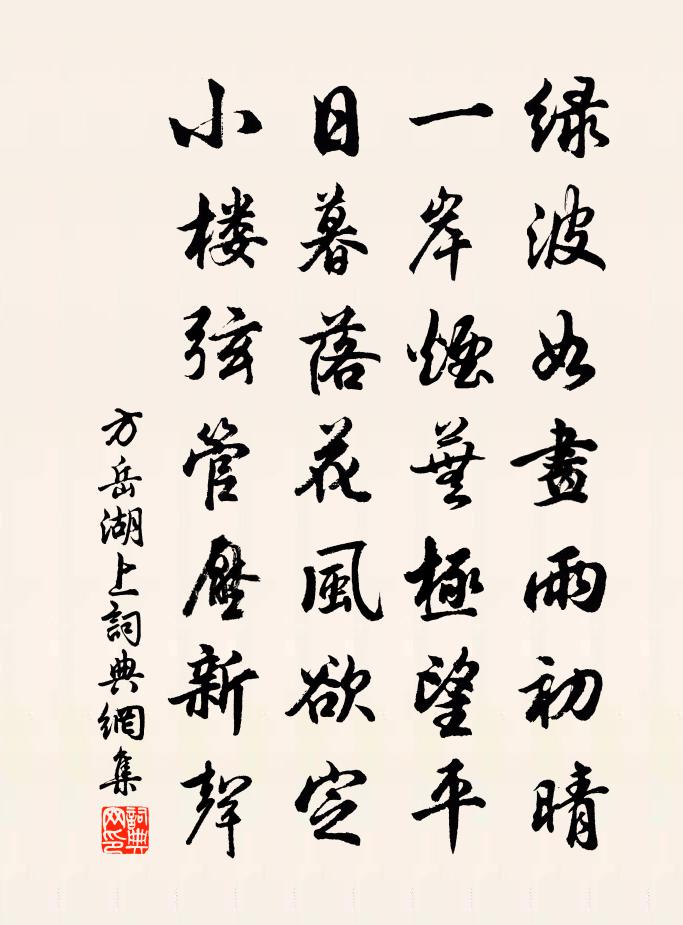 绿波如畫雨初晴
一岸煙蕪極望平
日暮落花風欲定
小楼弦管壓新聲
方岳湖上詞典網集
詞典網印